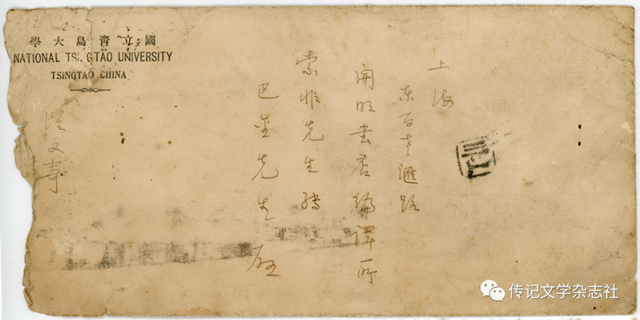 國立青島大學
NATIONAL TSINGTAO UNIVERSITY
TSINGTAO CHINA
上海
东百老滙路
開明书店編譯所
索非先生转
巴金先生啟
從文寄
传记文学杂志社